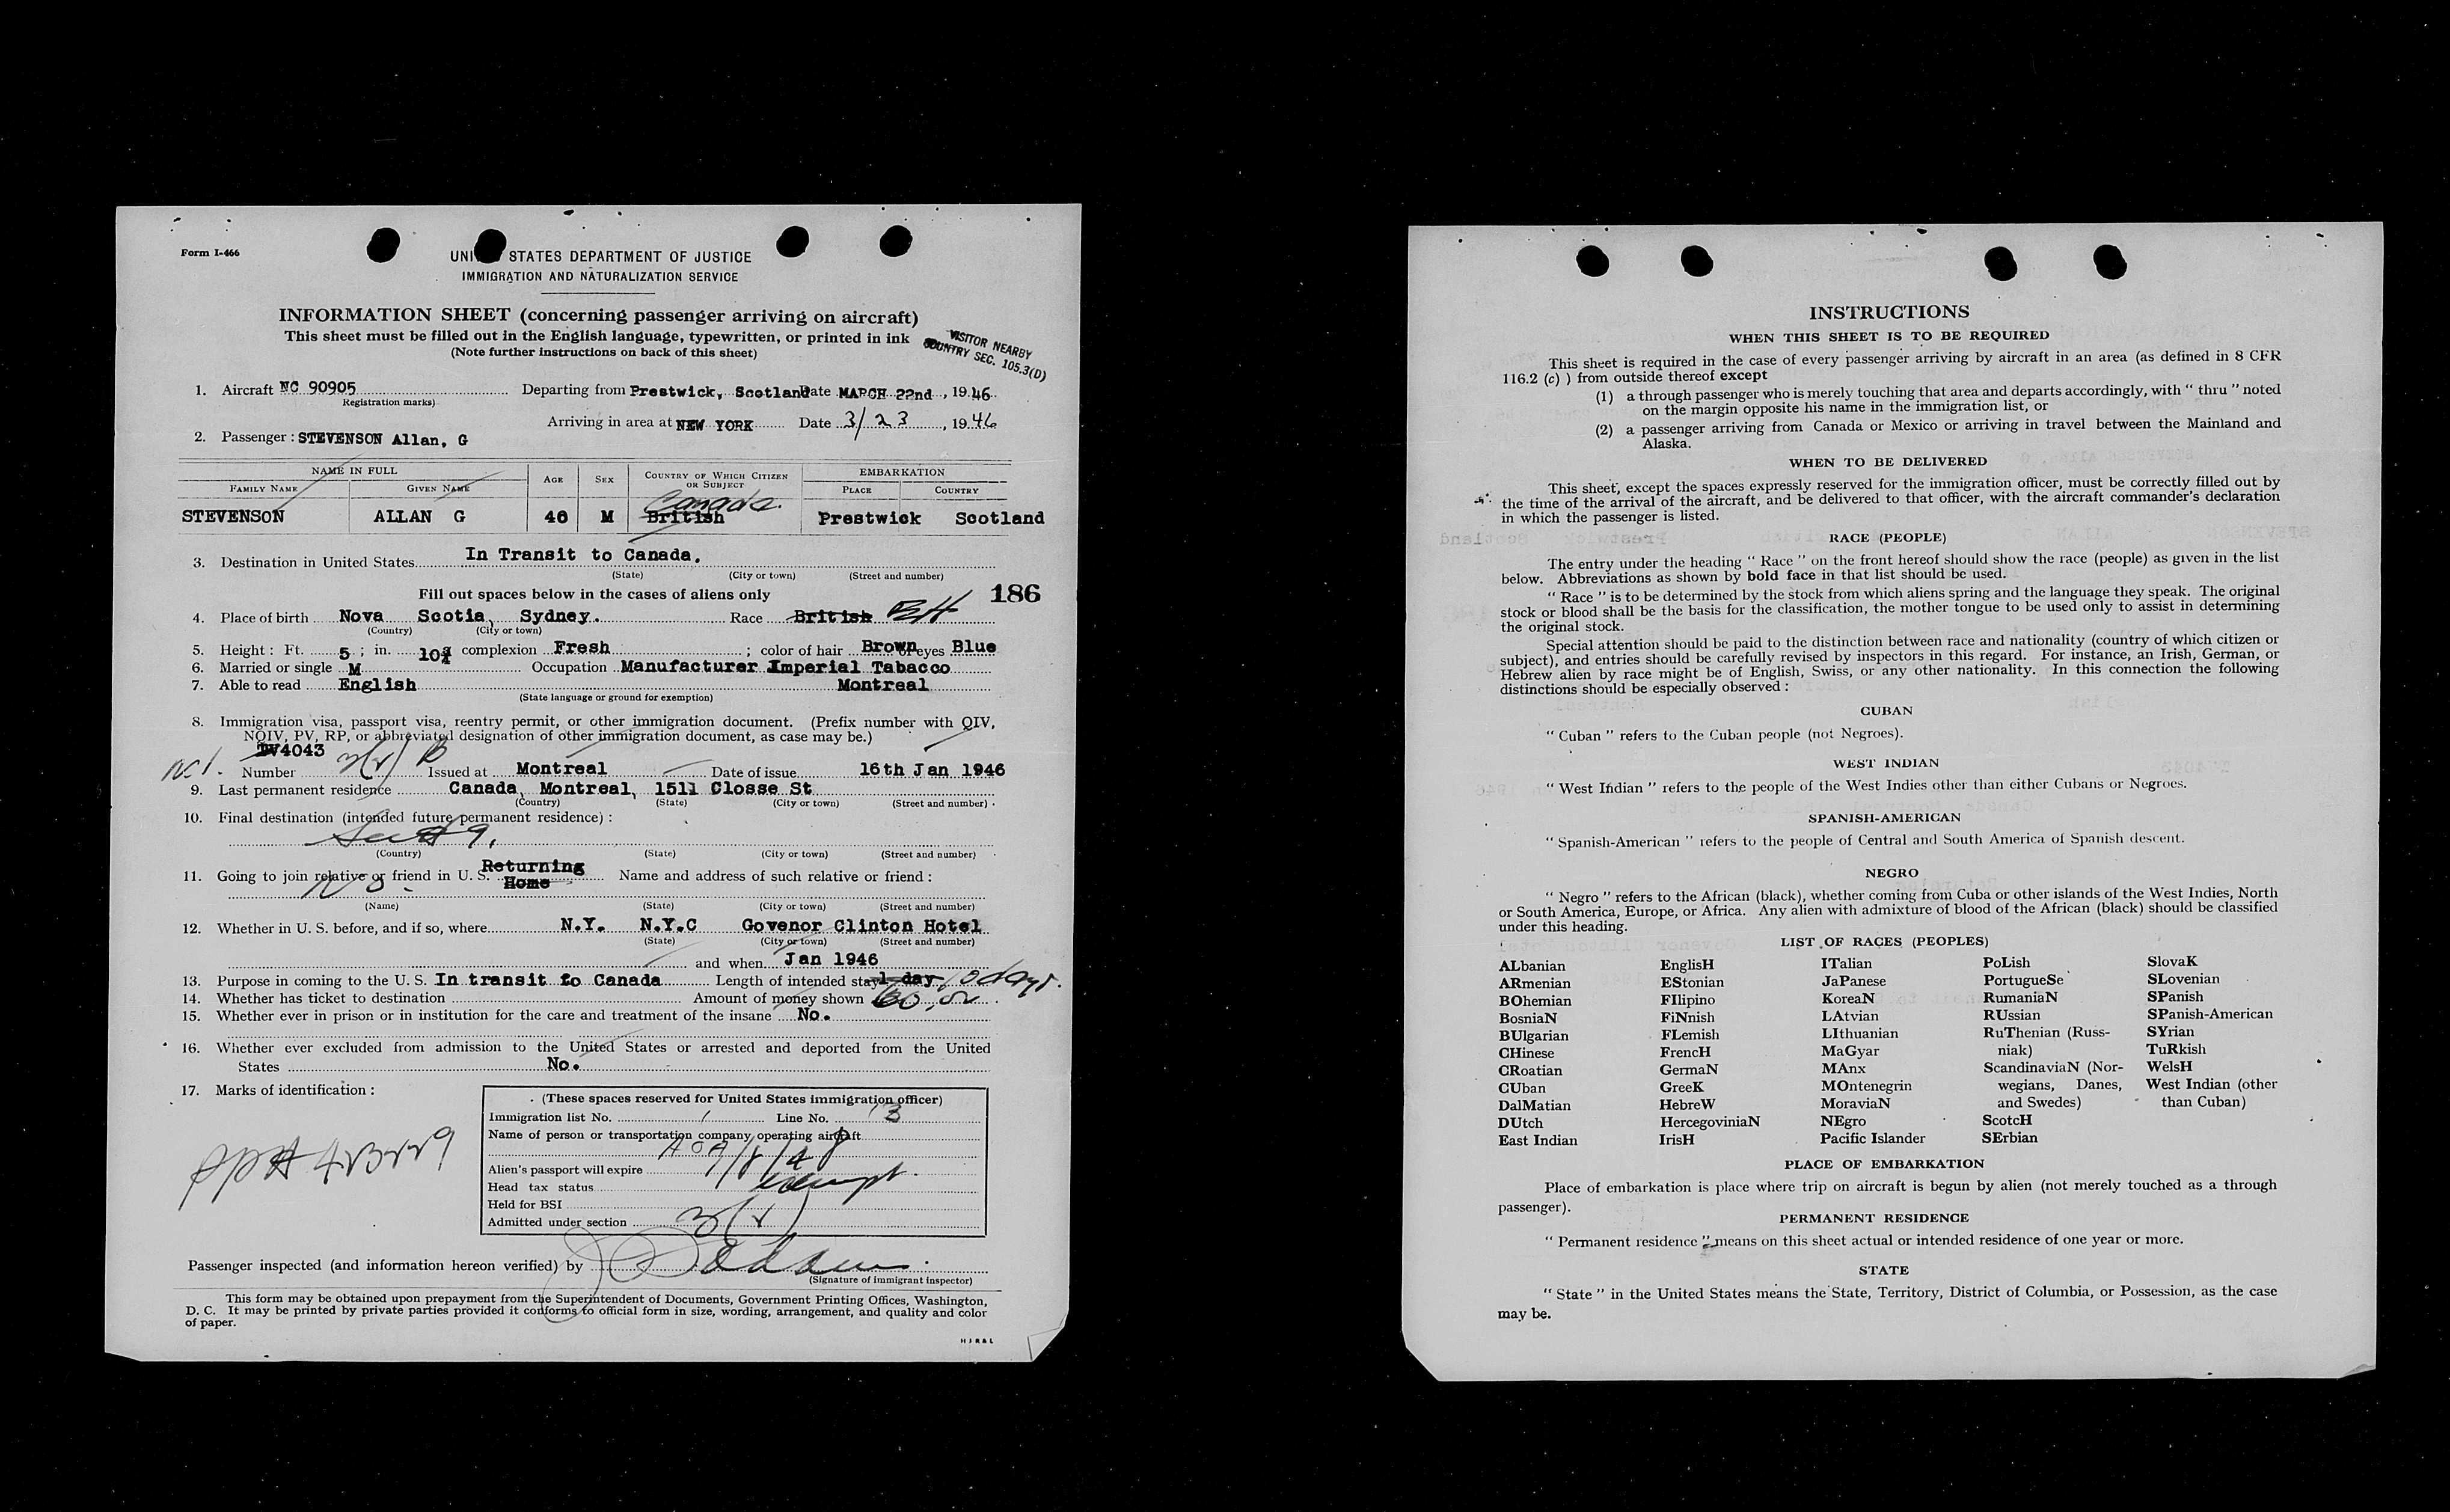 Form I-466
UNI STATES DEPARTMENT OF JUSTICE
IMMIGRATION AND NATURALIZATION SERVICE
INFORMATION SHEET (concerning passenger arriving on aircraft)
This sheet must be filled out in the English language, typewritten, or printed in ink
(Note further instructions on back of this sheet)
VISITOR NEARBY
COUNTRY SEC. 105.3(D)
1. Aircraft NC 90905 Departing from Prestwick, Scotland Date MARCH 22nd, 1946
Registration marks)
Arriving in area at NEW YORK Date 3/23, 1946
2. Passenger: STEVENSON Allan, G
NAME IN FULL AGE SEX COUNTRY OF WHICH CITIZEN OR SUBJECT EMBARKATION
FAMILY NAME GIVEN NAME PLACE COUNTRY
Canada.
STEVENSON ALLAN G 48 M British Prestwick Scotland
3. Destination in United States In Transit to Canada.
(State) (City or town) (Street and number)
Fill out spaces below in the cases of aliens only 186
4. Place of birth Nova Scotia, Sydney. Race British
(Country) (City or town)
5. Height: Ft. 5; in. complexion Fresh; color of hair Brown eyes Blue
6. Married or single M Occupation Manufacturer Imperial Tabacco
7. Able to read English Montreal
(State language or ground for exemption)
8. Immigration visa, passport visa, reentry permit, or other immigration document. (Prefix number with QIV,
NQIV, PV, RP, or abbreviated designation of other immigration document, as case may be.)
TV4043
Number Issued at Montreal Date of issue 16th Jan 1946
9. Last permanent residence Canada, Montreal, 1511 Closse St
(Country) (State) (City or town) (Street and number)
10. Final destination (intended future permanent residence):
See #9.
(Country) (State) (City or town) (Street and number)
11. Going to join relative or friend in U. S. Returning Home Name and address of such relative or friend:
No
(Name) (State) (City or town) (Street and number)
12. Whether in U. S. before, and if so, where N.Y. N.Y.C Govenor Clinton Hotel
(State) (City or town) (Street and number)
and when Jan 1946
13. Purpose in coming to the U. S. In transit to Canada Length of intended stay 1 day 10 days.
14. Whether has ticket to destination Amount of money shown
15. Whether ever in prison or in institution for the care and treatment of the insane No.
16. Whether ever excluded from admission to the United States or arrested and deported from the United
States No.
17. Marks of identification:
(These spaces reserved for United States immigration officer)
Immigration list No. 1 Line No. 13
Name of person or transportation company operating aircraft
AOA
Alien's passport will expire 9/8/48
Head tax status exempt.
Held for BSI
Admitted under section 3(2)
Passenger inspected (and information hereon verified) by
(Signature of immigrant inspector)
This form may be obtained upon prepayment from the Superintendent of Documents, Government Printing Offices, Washington,
D. C. It may be printed by private parties provided it conforms to official form in size, wording, arrangement, and quality and color
of paper.
INSTRUCTIONS
WHEN THIS SHEET IS TO BE REQUIRED
This sheet is required in the case of every passenger arriving by aircraft in an area (as defined in 8 CFR
116.2 (c) ) from outside thereof except
(1) a through passenger who is merely touching that area and departs accordingly, with "thru" noted
on the margin opposite his name in the immigration list, or
(2) a passenger arriving from Canada or Mexico or arriving in travel between the Mainland and
Alaska.
WHEN TO BE DELIVERED
This sheet, except the spaces expressly reserved for the immigration officer, must be correctly filled out by
the time of the arrival of the aircraft, and be delivered to that officer, with the aircraft commander's declaration
in which the passenger is listed.
RACE (PEOPLE)
The entry under the heading "Race" on the front hereof should show the race (people) as given in the list
below. Abbreviations as shown by bold face in that list should be used.
"Race" is to be determined by the stock from which aliens spring and the language they speak. The original
stock or blood shall be the basis for the classification, the mother tongue to be used only to assist in determining
the original stock.
Special attention should be paid to the distinction between race and nationality (country of which citizen or
subject), and entries should be carefully revised by inspectors in this regard. For instance, an Irish, German, or
Hebrew alien by race might be of English, Swiss, or any other nationality. In this connection the following
distinctions should be especially observed:
CUBAN
"Cuban" refers to the Cuban people (not Negroes).
WEST INDIAN
"West Indian" refers to the people of the West Indies other than either Cubans or Negroes.
SPANISH-AMERICAN
"Spanish-American" refers to the people of Central and South America of Spanish descent.
NEGRO
"Negro" refers to the African (black), whether coming from Cuba or other islands of the West Indies, North
or South America, Europe, or Africa. Any alien with admixture of blood of the African (black) should be classified
under this heading.
LIST OF RACES (PEOPLES)
ALbanian EnglisH ITalian PoLish SlovaK
ARmenian EStonian JaPanese PortugueSe SLovenian
BOhemian FIlipino KoreaN RumaniaN SPanish
BosniaN FiNnish LAtvian RUssian SPanish-American
BUlgarian FLemish LIthuanian RuThenian (Russ- SYrian
CHinese FrencH MaGyar niak) TuRkish
CRoatian GermaN MAnx ScandinaviaN (Nor- WelsH
CUban GreeK MOntenegrin wegians, Danes, West Indian (other
DalMatian HebreW MoraviaN and Swedes) than Cuban)
DUtch HercegoviniaN NEgro ScotcH
East Indian IrisH Pacific Islander SErbian
PLACE OF EMBARKATION
Place of embarkation is place where trip on aircraft is begun by alien (not merely touched as a through
passenger).
PERMANENT RESIDENCE
"Permanent residence" means on this sheet actual or intended residence of one year or more.
STATE
"State" in the United States means the State, Territory, District of Columbia, or Possession, as the case
may be.